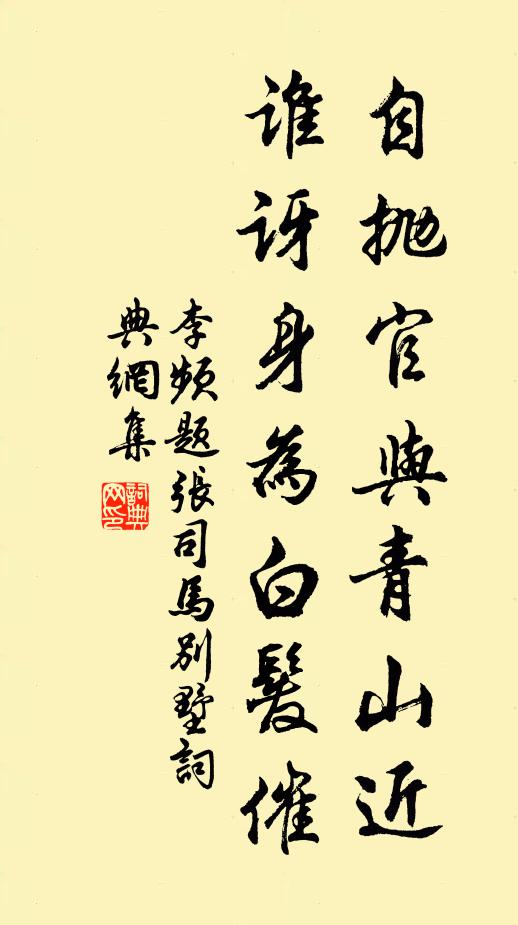 自拋官與青山近
誰訝身為白髮催
李頻題張司馬別墅詞
典網集
詞典
网印